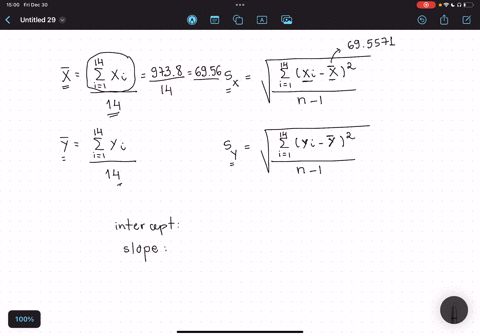 15:05 Fri Dec 30
Untitled 29
69.5571
X̄ = \frac{\sum_{i=1}^{14} Xi}{14} = \frac{973.8}{14} = 69.56
S_X = \sqrt{\frac{\sum_{i=1}^{14} (Xi - X̄)^2}{n-1}}
Ȳ = \frac{\sum_{i=1}^{14} Yi}{14}
S_Y = \sqrt{\frac{\sum_{i=1}^{14} (Yi - Ȳ)^2}{n-1}}
intercept:
slope:
100%